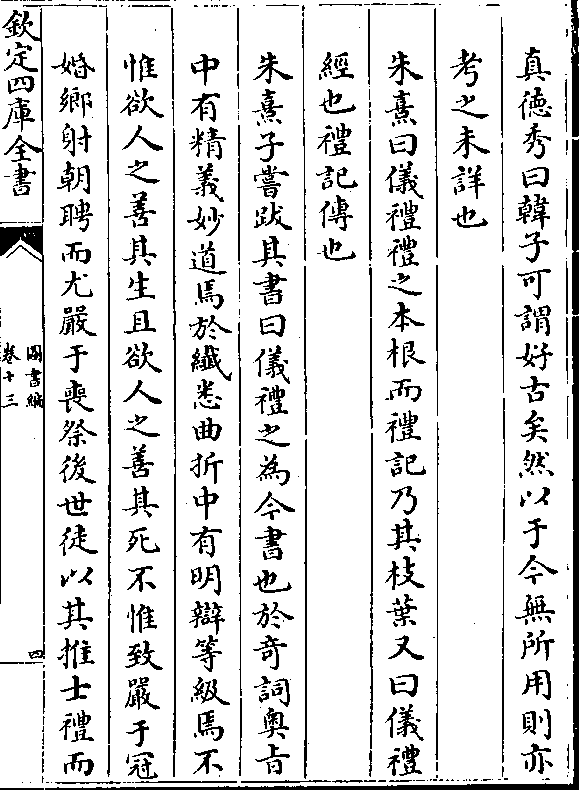 真德秀曰韓子可謂好古矣然以于今無所用則亦
考之未詳也
朱熹曰儀禮禮之本根而禮記乃其枝葉又曰儀禮
經也禮記傳也
朱熹子嘗跋其書曰儀禮之為今書也於奇詞奥㫖
中有精義妙道焉於纎悉曲折中有明辯等級焉不
惟欲人之善其生且欲人之善其死不惟致嚴于冠
婚鄉射朝聘而尤嚴于喪祭後世徒以其推士禮而
欽定四庫全書
圖書編
卷十三
四